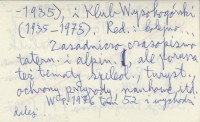 -1935), i Klub Wysokogórski
(1935-1975). Red.: kolejno...
Zasadnicze czasopismo
tatern. i alpin., ale porusza
też tematy speleol., turyst.,
ochrony przyrody, nauk. itd.
W r. 1976 t. 52 i wychodzi
dalej